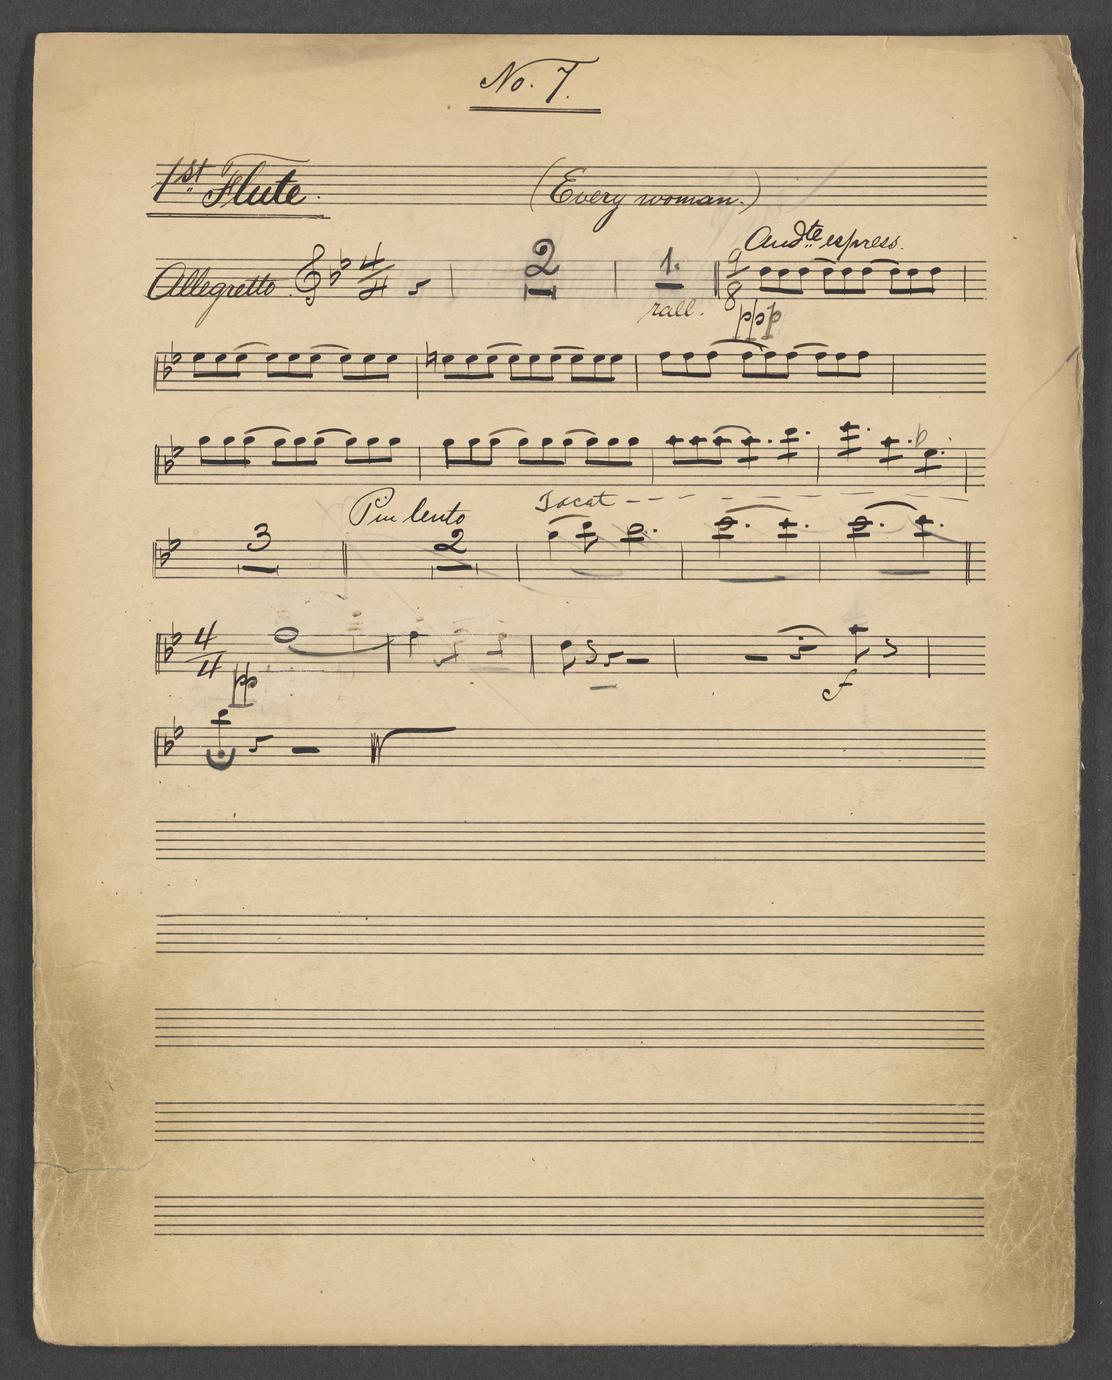 No. 7.
1st Flute. (Every woman.)
Andte espress.
Allegretto 4/4 2 1. 9/8
rall. ppp
Piu lento Tacet
3 2
4/4
pp f